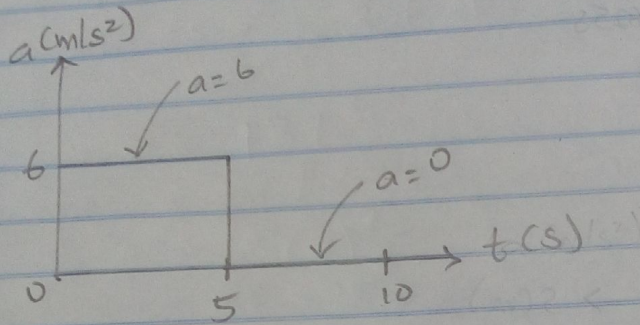 a(m/s²)
a=6
6
a=0
t(s)
0
5
10